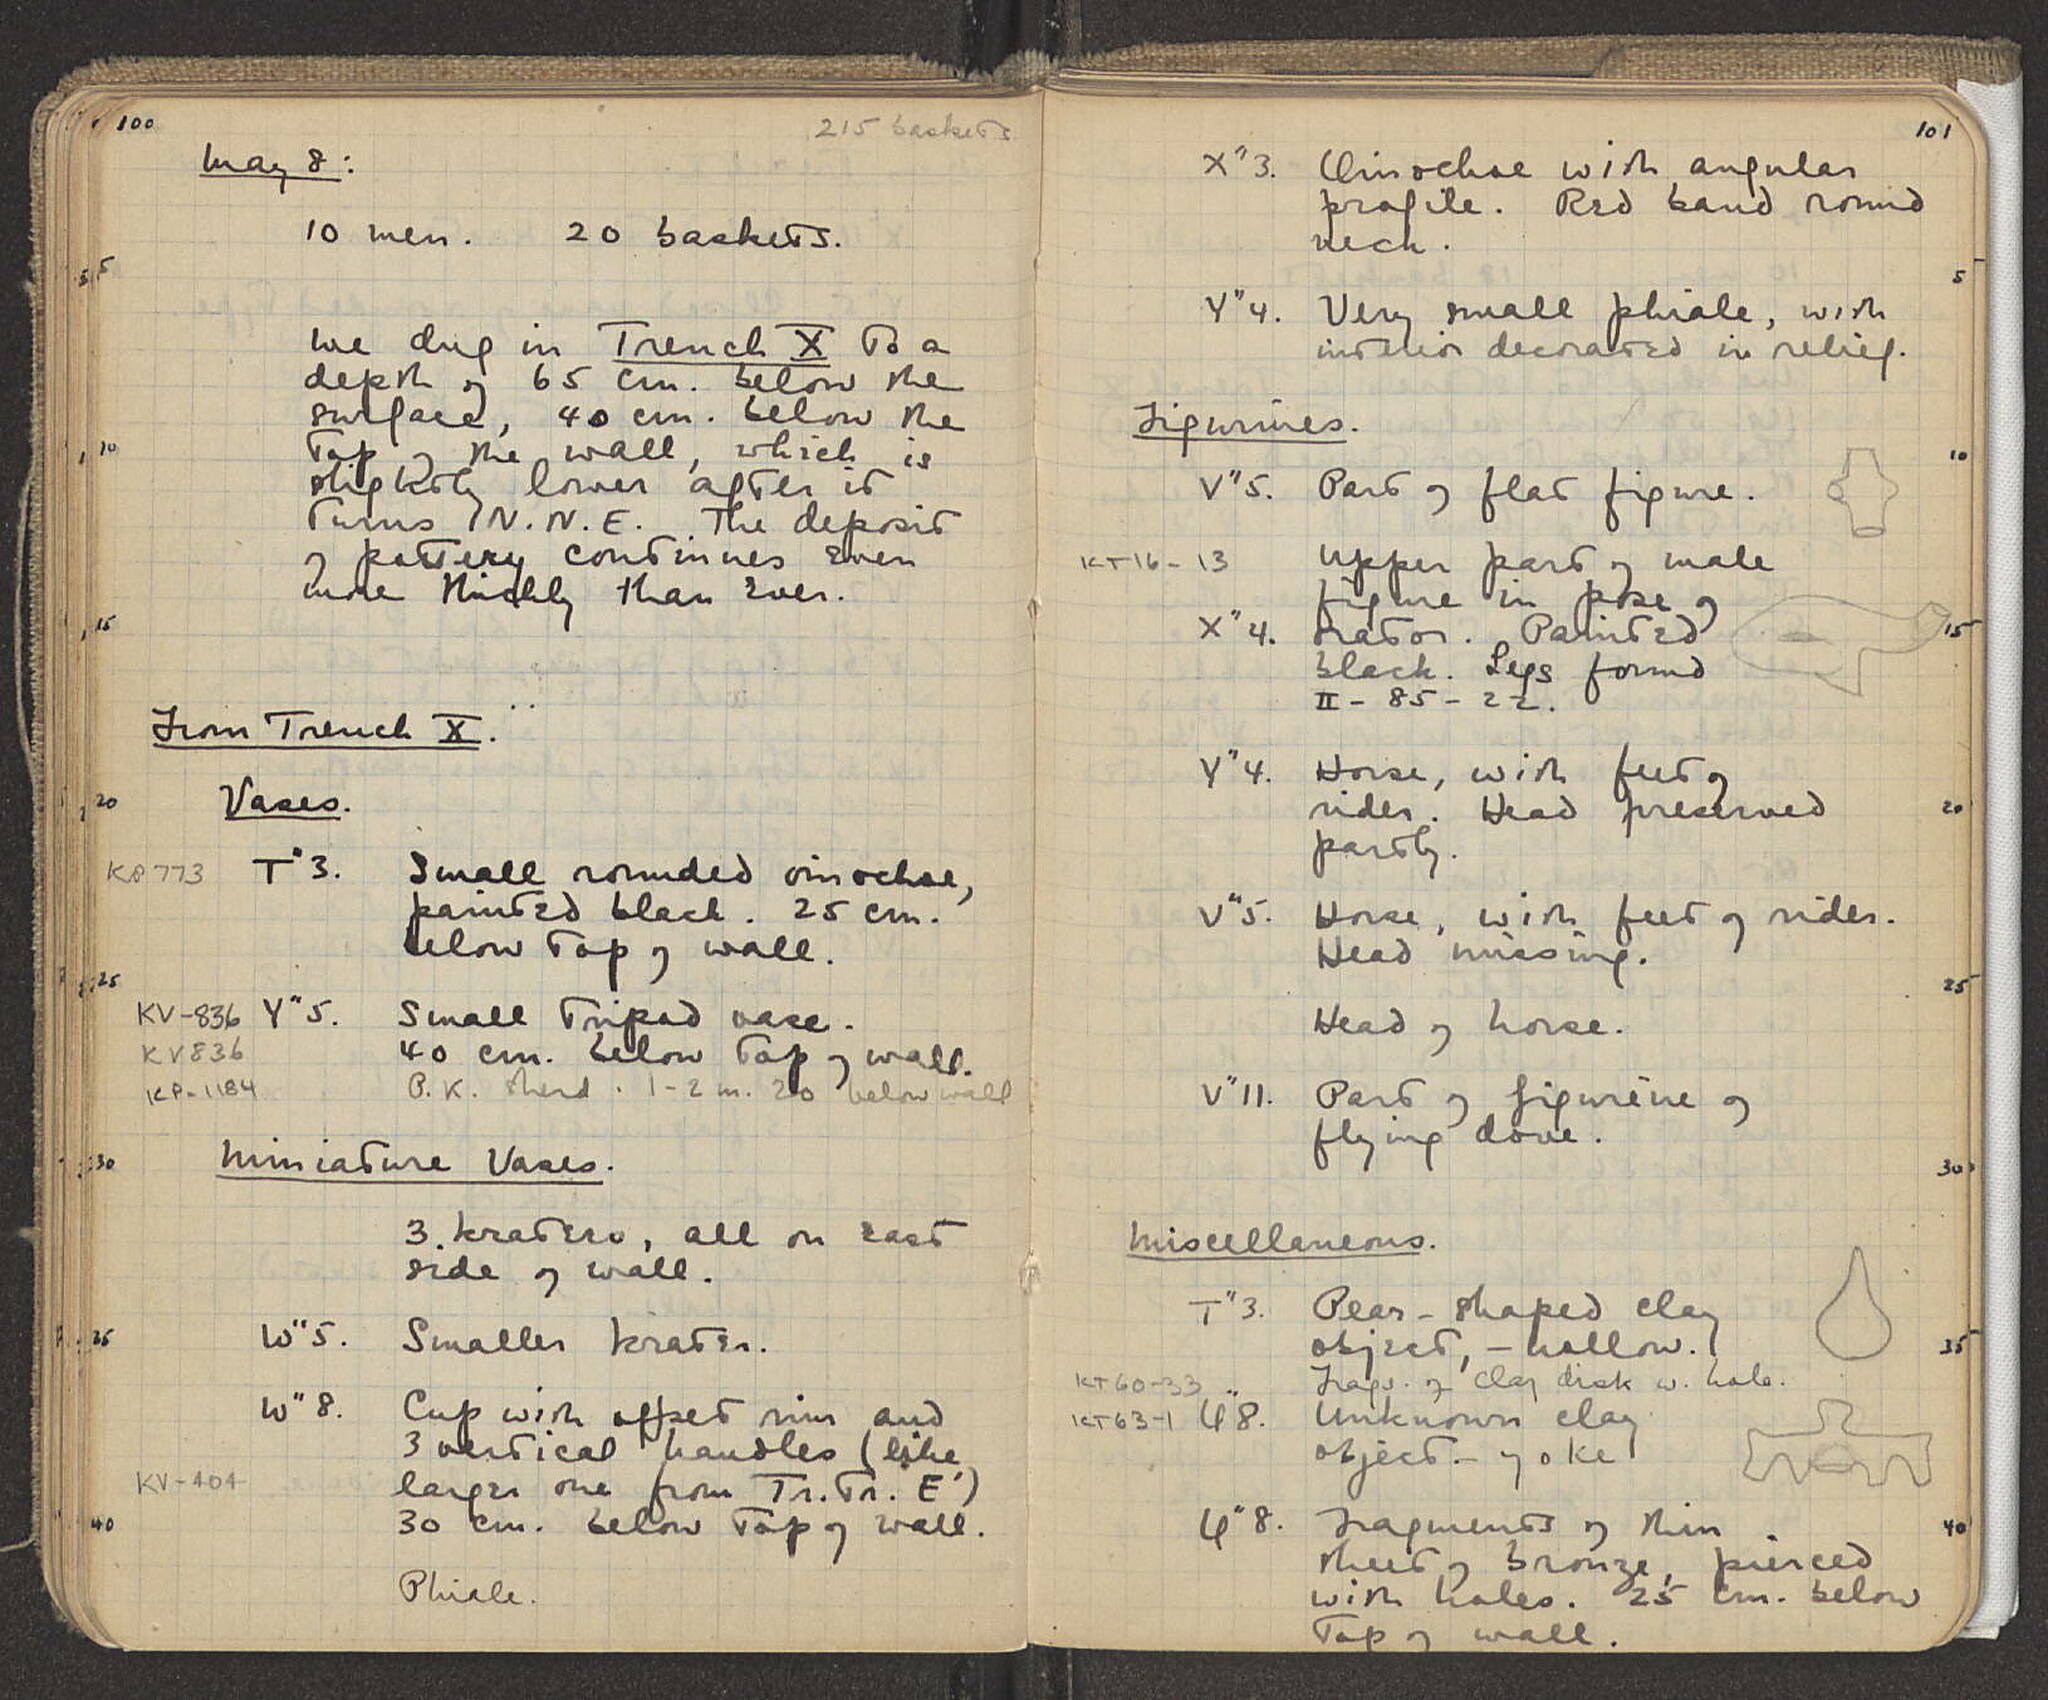 100
215 baskets
May 8:
10 men. 20 baskets.
5
We dug in Trench X to a
depth of 65 cm. below the
surface, 40 cm. below the
10 top of the wall, which is
slightly lower after it
turns N.N.E. The deposit
of pottery continues even
more thickly than ever.
15
From Trench X.
20 Vases.
KP773 T"3. Small rounded oinochoe,
painted black. 25 cm.
below top of wall.
25
KV-836 Y"5. Small tripod vase.
KV836 40 cm. below top of wall.
KP-1184 P.K. sherd. 1-2 m. 20 below wall
30 Miniature Vases.
3 kraters, all on east
side of wall.
35 W"5. Smaller krater.
W"8. Cup with offset rim and
3 vertical handles (like
KV-404 larger one from Tr.Tr. E')
40 30 cm. below top of wall.
Phiale.
101
X"3. Oinochoe with angular
profile. Red band round
neck.
5
Y"4. Very small phiale, with
interior decorated in relief.
Figurines.
10
V"5. Part of flat figure.
KT16-13 Upper part of male
figure in pose of
X"4. orator. Painted 15
black. Legs found
II-85-22.
Y"4. Horse, with feet of
rider. Head preserved 20
partly.
V"5. Horse, with feet of rider.
Head missing.
25
Head of horse.
V"11. Part of figurine of
flying dove.
30
Miscellaneous.
T"3. Pear-shaped clay
object, - hollow. 35
KT60-33 " Frags. of clay disk w. hole.
KT63-1 Ψ"8. Unknown clay
object. - yoke
Ψ"8. Fragments of thin 40
sheet of bronze, pierced
with holes. 25 cm. below
top of wall.